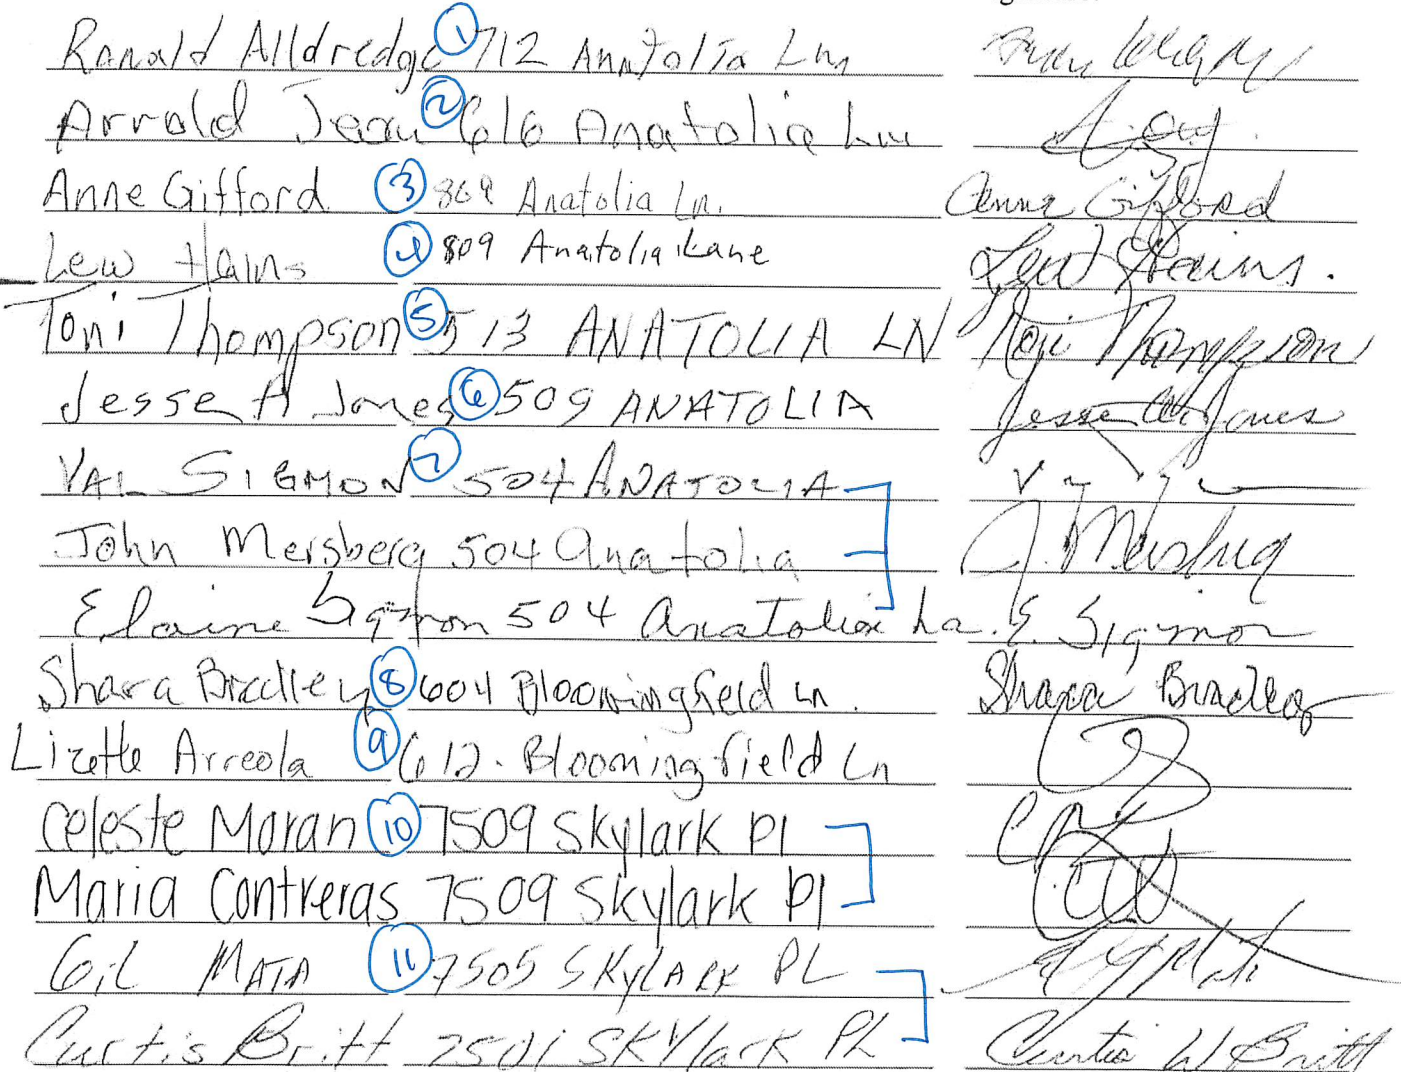 Ranald Alldredge 1 712 Anatolia Ln
Arrold Jean 2 616 Anatolia Ln
Anne Gifford 3 808 Anatolia Ln. Anne Gifford
Lew Hains 4 809 Anatolia Lane Lew Hains.
Toni Thompson 5 513 ANATOLIA LN Toni Thompson
Jesse A Jones 6 509 ANATOLIA Jesse A. Jones
VAL SIGMON 7 504 ANATOLIA
John Mersberg 504 Anatolia J. Mersberg
Elaine Sigmon 504 Anatolia La. E. Sigmon
Shara Bradley 8 604 Bloomingfield Ln. Shara Bradley
Lizette Arreola 9 612. Bloomingfield Ln
Celeste Moran 10 7509 Skylark Pl CM
Maria Contreras 7509 Skylark Pl
Gil MATA 11 7505 SKYLARK PL
Curtis Britt 7501 SKYlark PL Curtis W Britt